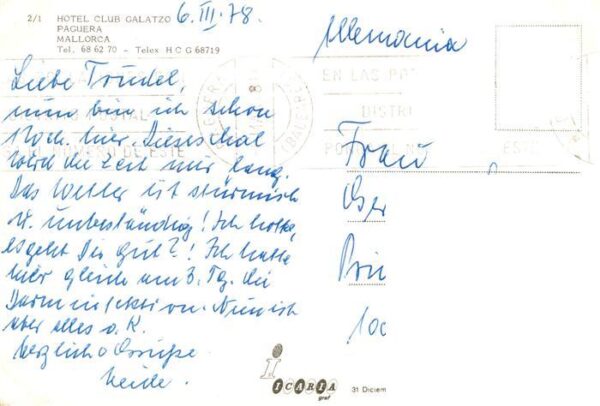 2/1 HOTEL CLUB GALATZO
PAGUERA
MALLORCA
Tel. 68 62 70 - Telex H C G 68719
6. III. 78.
Liebe Trudel,
nun bin ich schon
1 Woch. hier. Dieses Mal
wird die Zeit mir lang.
Das Wetter ist stürmisch
u. unbeständig! Ich hoffe,
es geht Dir gut?! Ich hatte
hier gleich am 3. Tg. die
Darminfektion. Nun ist
aber alles o. K.
Herzliche Grüße
Heide.
Allemania
EN LAS
DISTRI
ESTE
Frau
ICARIA
graf
31 Diciem